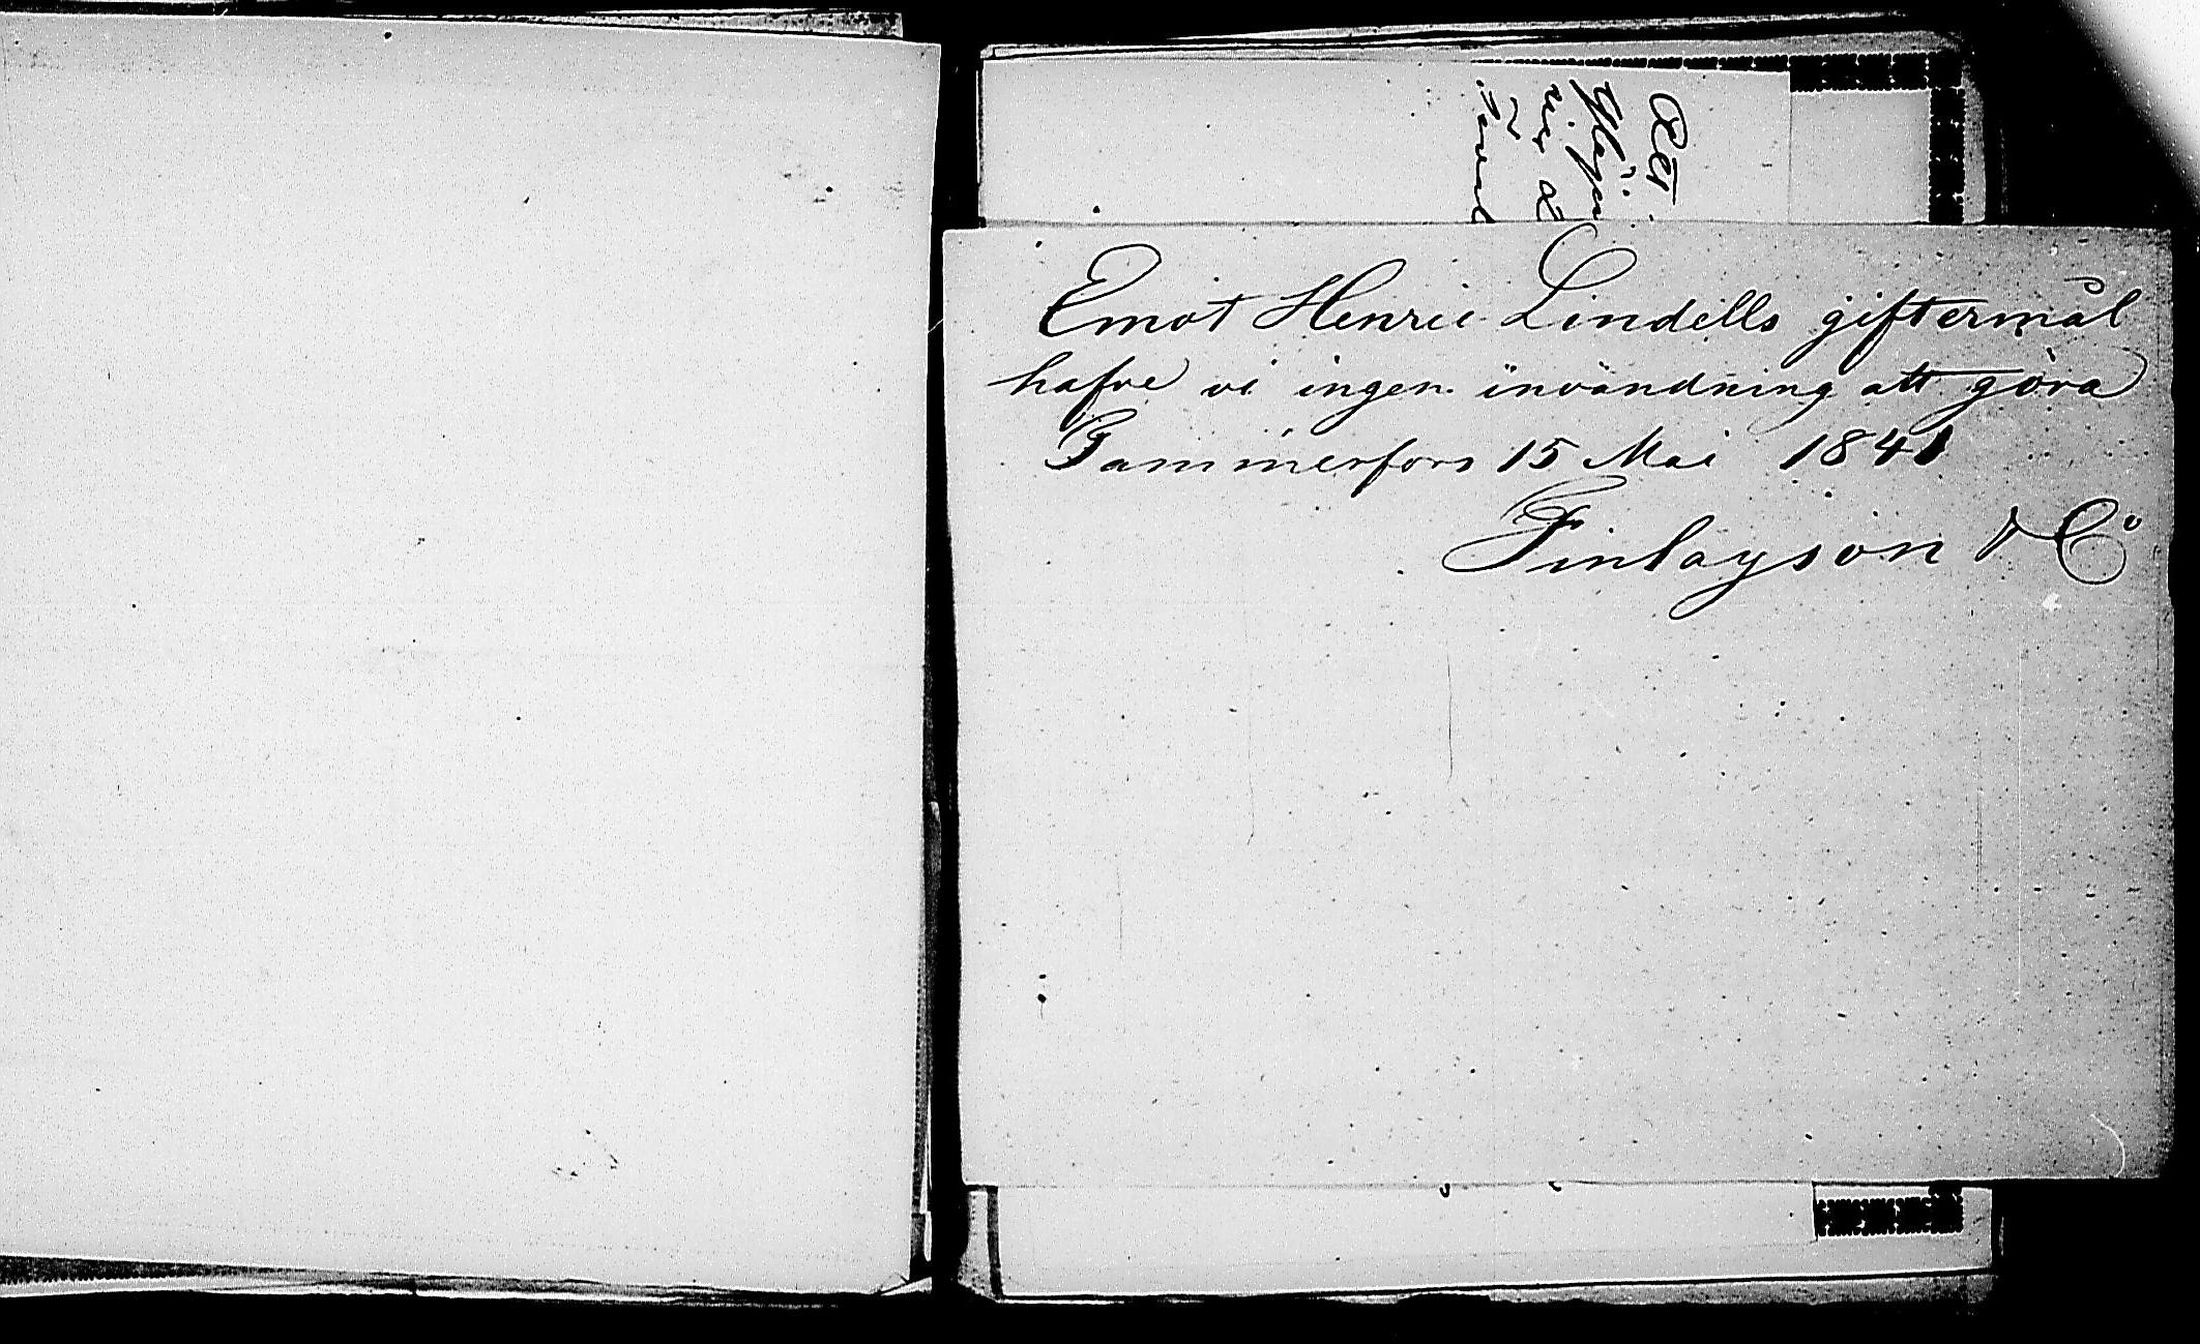 Att
Emot Henric Lindells giftermål
hafve vi ingen invändning att göra
Tammerfors 15 Mai 1841
Finlayson & Co